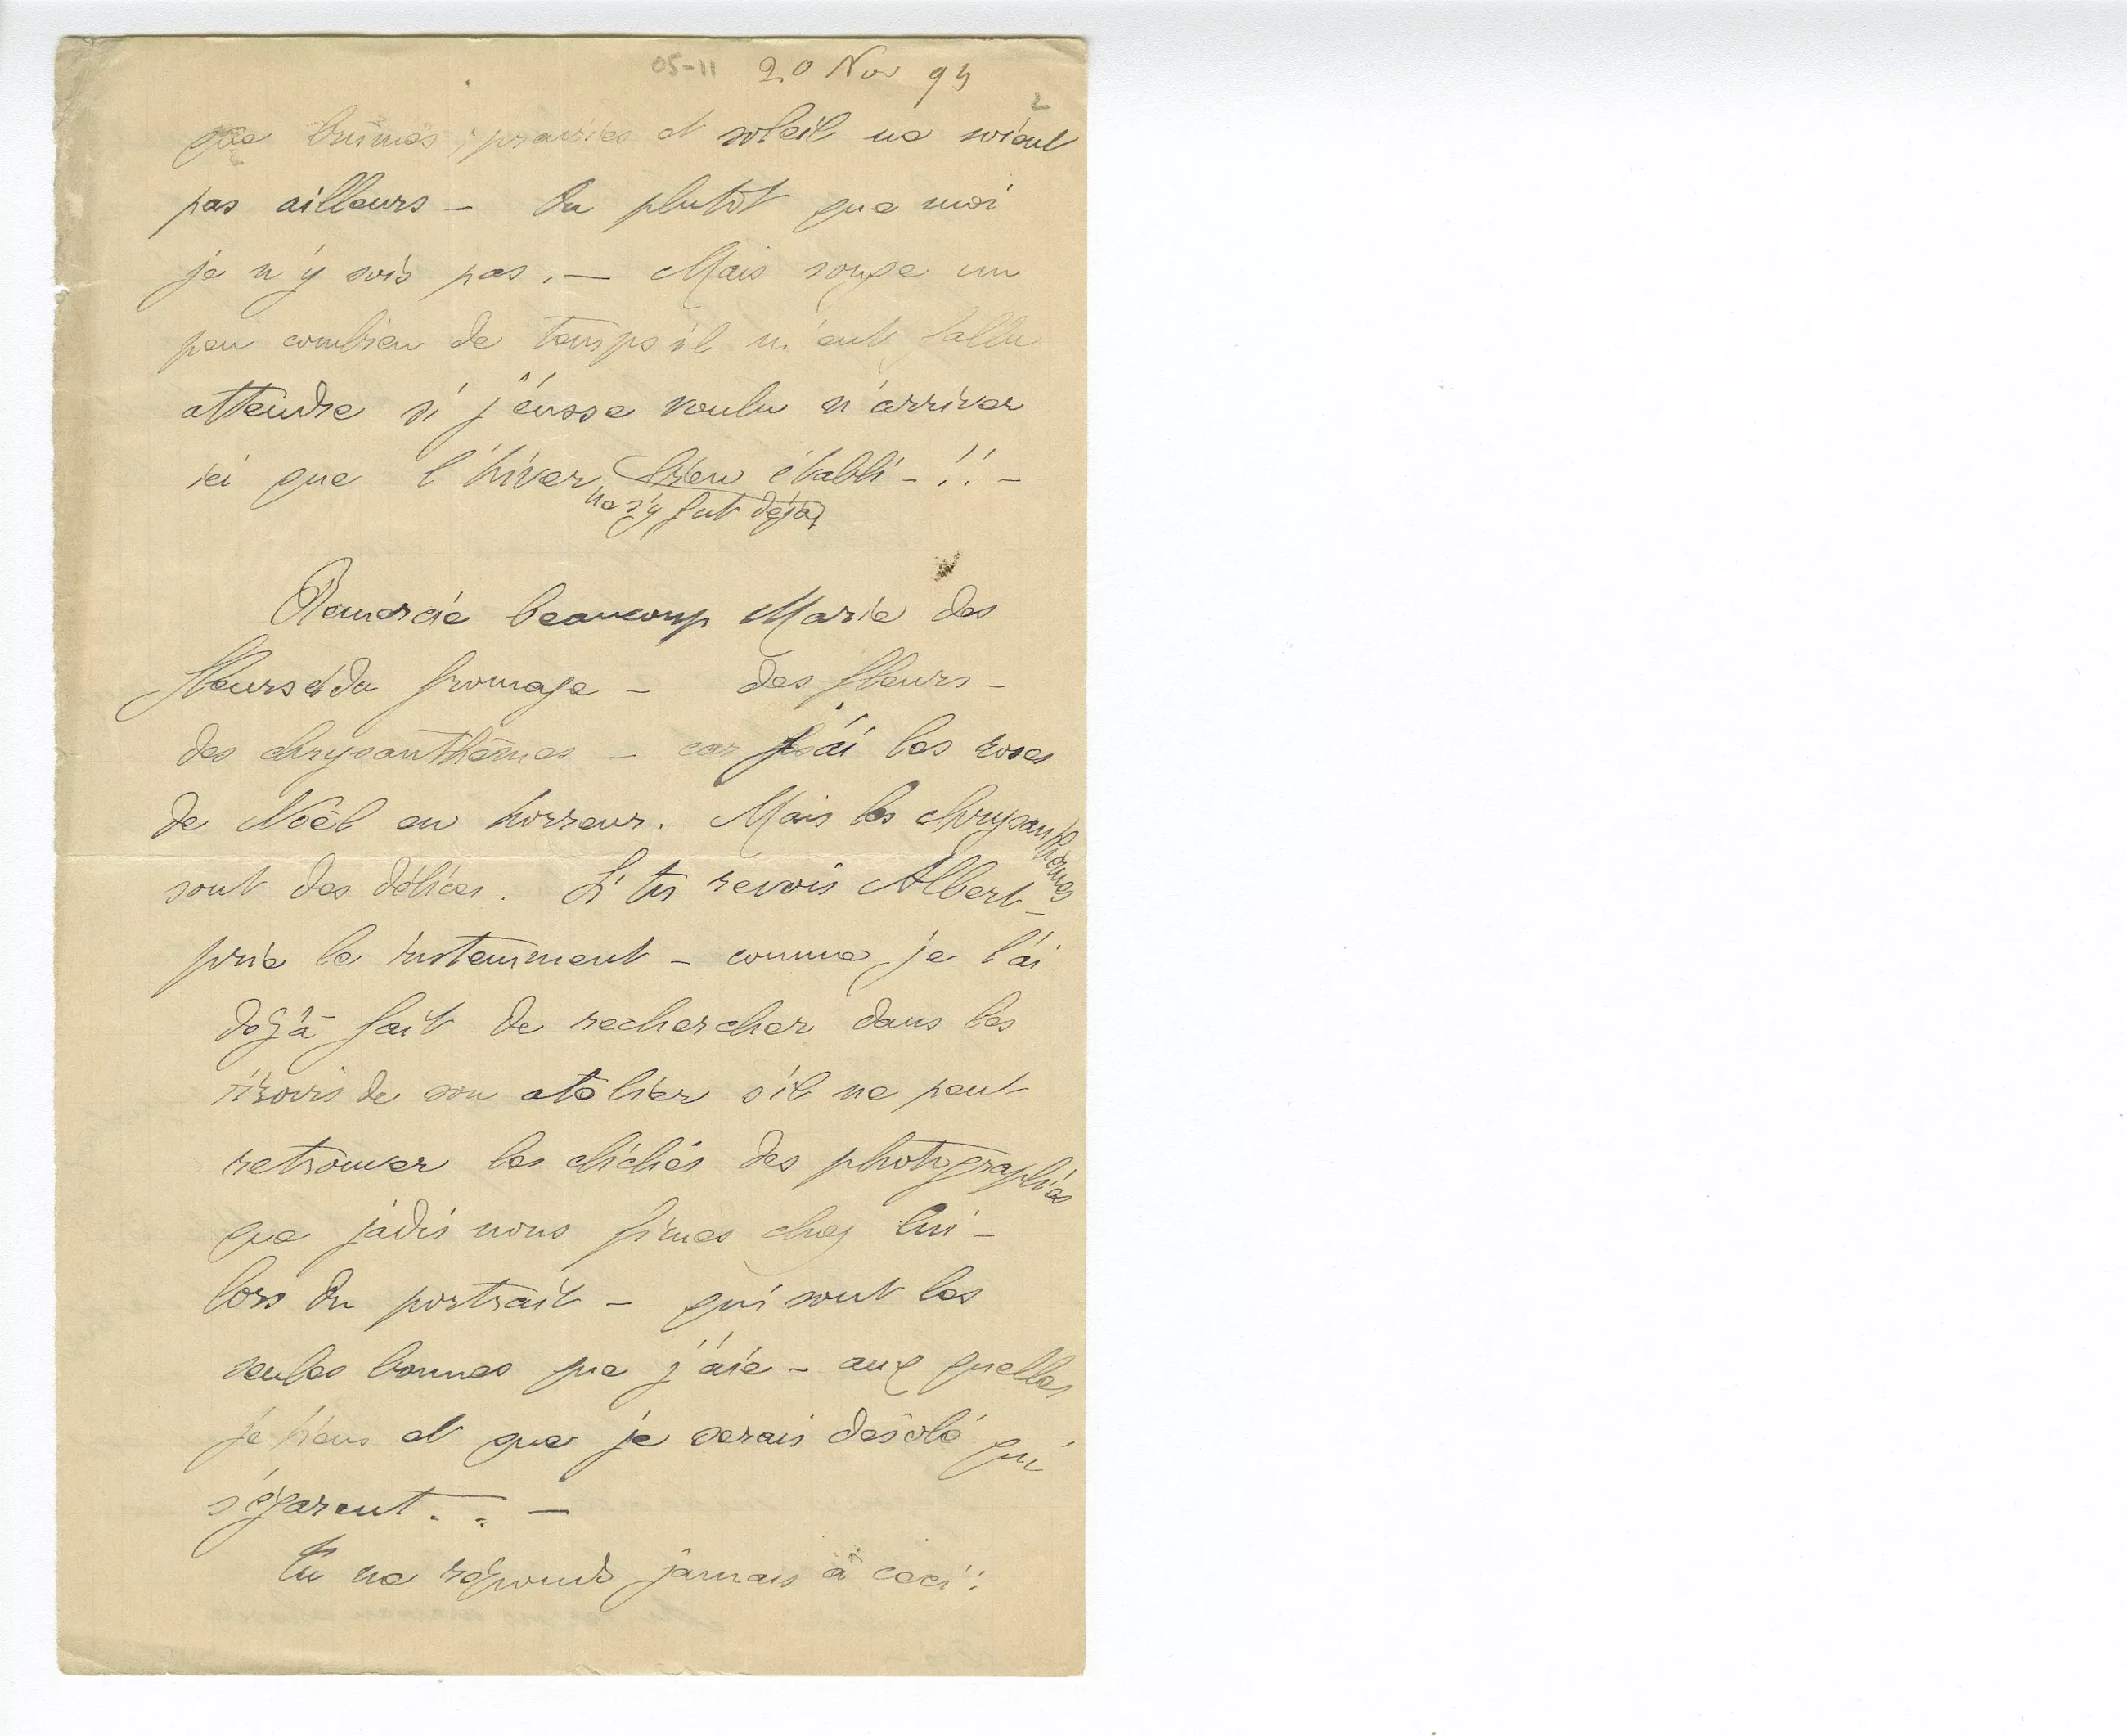 05-11 20 Nov 94
2
que brumes, prairies et soleil ne soient
pas ailleurs – Ou plutôt que moi
je n'y sois pas. – Mais songe un
peu combien de temps il m'eut fallu
attendre si j'eusse voulu n'arriver
ici que l'hiver bien établi – !! –
ne s'y fut déjà
Remercie beaucoup Marie des
fleurs et du fromage – des fleurs –
des chrysanthèmes – car j'ai les roses
de Noël en horreur. Mais les chrysanthèmes
sont des délices. Si tu revois Albert –
prie le instamment – comme je l'ai
déjà fait de rechercher dans les
tiroirs de son atelier s'il ne peut
retrouver les clichés des photographies
que jadis nous fîmes chez lui –
lors du portrait – qui sont les
seules bonnes que j'aie – aux quelles
je tiens et que je serais désolé qui
s'égarent . . –
Tu ne réponds jamais à ceci :